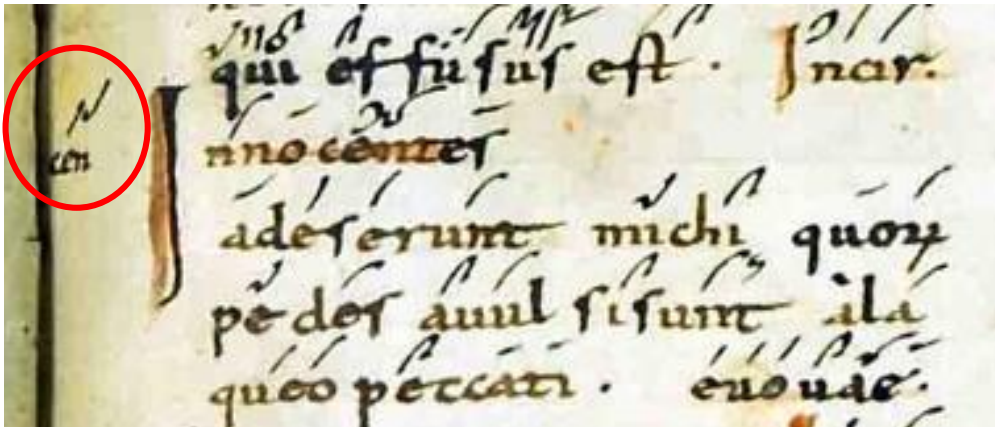 qui effusus est . Incar.
cen
Innocentes
adeserunt michi quoꝝ
pedes auulsisunt ala
queo peccati . euouae.